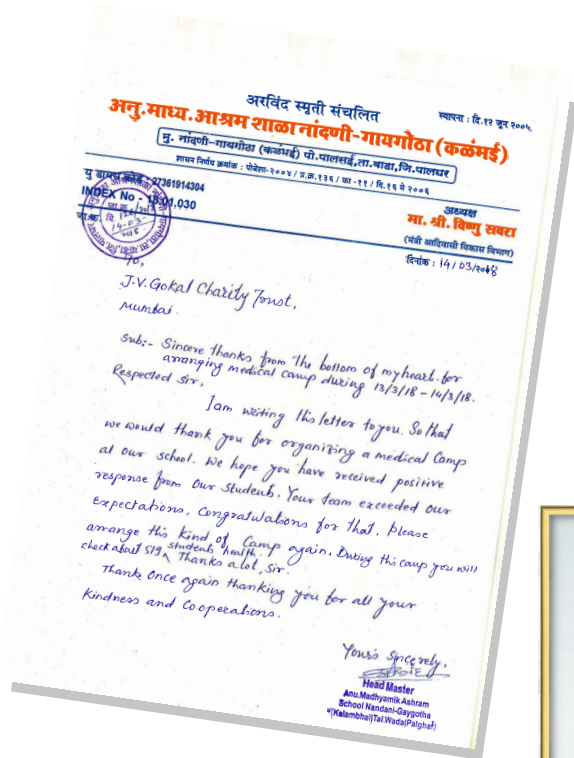 अरविंद स्मृती संचलित
स्थापना : दि.१२ जून २००५.
अनु.माध्य.आश्रम शाळा नांदणी-गायगोठा (कळंभई)
मु. नांदणी-गायगोठा (कळंभई) पो.पालसई,ता.वाडा,जि.पालघर
शासन निर्णय क्रमांक : पोबेशा-२००४ / प्र.क्र.१३६ / का -११ / दि.१६ मे २००६
यु डायस कोड : 27361914304
INDEX No - 16.01.030
जा.क्र.
अध्यक्ष
मा. श्री. विष्णु सवरा
(मंत्री आदिवासी विकास विभाग)
दिनांक : 14/03/२०१8
To,
J.V. Gokal Charity Trust,
Mumbai.
Sub:- Sincere thanks from the bottom of my heart for
arranging medical camp during 13/3/18 - 14/3/18.
Respected Sir,
I am writing this letter to you. So that
we would thank you for organizing a medical Camp
at our school. We hope you have received positive
response from our students. Your team exceeded our
Expectations, Congratulations for that. Please
arrange this kind of Camp again. During this camp you will
check about 519 students health. Thanks a lot, sir.
Thanks once again thanking you for all your
kindness and Co-operations.
Yours Sincerely,
Head Master
Anu.Madhyamik Ashram
School Nandani-Gaygotha
(Kalambhai)Tal.Wada(Palghar)